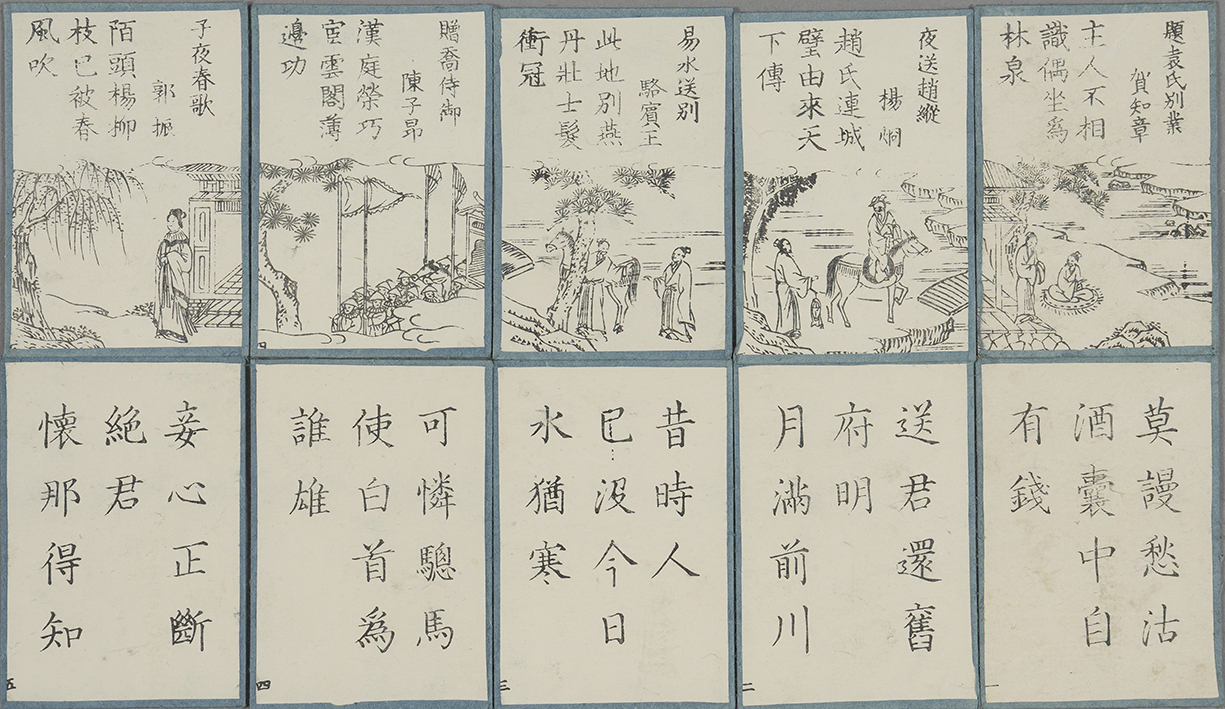 題袁氏別業
賀知章
主人不相
識偶坐爲
林泉
莫謾愁沽
酒囊中自
有錢
一
夜送趙縱
楊炯
趙氏連城
璧由來天
下傳
送君還舊
府明
月滿前川
二
易水送別
駱賓王
此地別燕
丹壯士髮
衝冠
昔時人
已沒今日
水猶寒
三
贈喬侍御
陳子昂
漢庭榮巧
宦雲閣薄
邊功
四
可憐驄馬
使白首爲
誰雄
四
子夜春歌
郭振
陌頭楊柳
枝已被春
風吹
妾心正斷
絕君
懷那得知
五